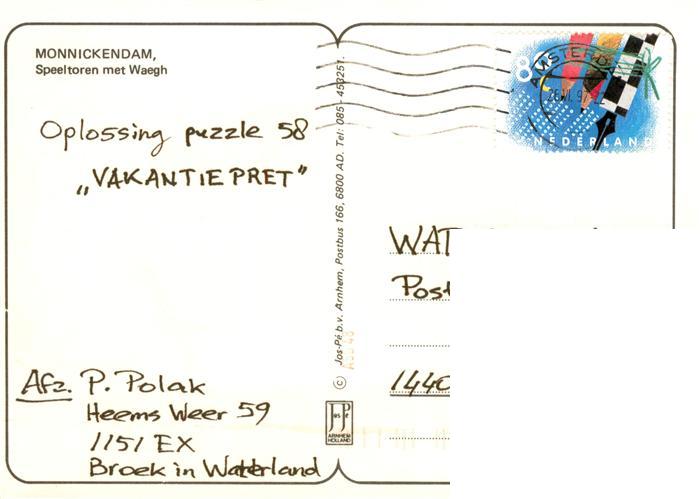 MONNICKENDAM,
Speeltoren met Waegh
Oplossing puzzle 58
„VAKANTIEPRET"
Afz. P. Polak
Heems Weer 59
1151 EX
Broek in Waterland
© Jos-Pé b.v. Arnhem, Postbus 166, 6800 AD. Tel: 085 - 453251.
Jos Pé
ARNHEM
HOLLAND
80
AMSTERD
NEDERLAND
WAT
Post
1440